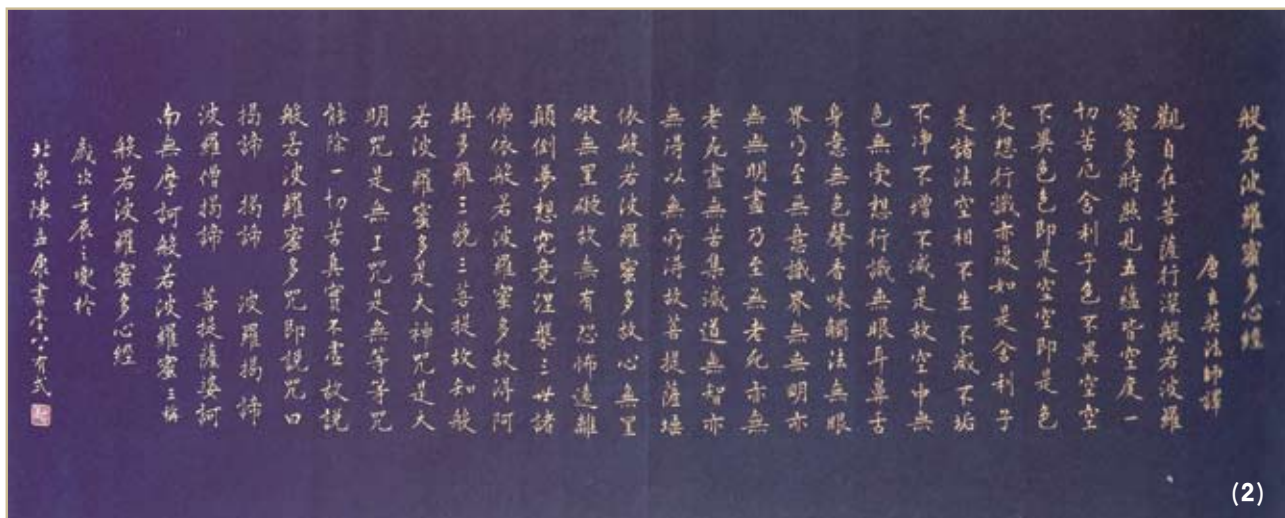 般若波羅蜜多心經
唐玄奘法師譯
觀自在菩薩行深般若波羅
蜜多時照見五蘊皆空度一
切苦厄舍利子色不異空空
不異色色即是空空即是色
受想行識亦復如是舍利子
是諸法空相不生不滅不垢
不净不增不減是故空中無
色無受想行識無眼耳鼻舌
身意無色聲香味觸法無眼
界乃至無意識界無無明亦
無無明盡乃至無老死亦無
老死盡無苦集滅道無智亦
無得以無所得故菩提薩埵
依般若波羅蜜多故心無罣
礙無罣礙故無有恐怖遠離
顛倒夢想究竟涅槃三世諸
佛依般若波羅蜜多故得阿
耨多羅三藐三菩提故知般
若波羅蜜多是大神咒是大
明咒是無上咒是無等等咒
能除一切苦真實不虛故說
般若波羅蜜多咒即說咒曰
揭諦 揭諦 波羅揭諦
波羅僧揭諦 菩提薩婆訶
南無摩訶般若波羅蜜 三稱
般若波羅蜜多心經
歲次壬辰之夏於
陳孟康書
(2)